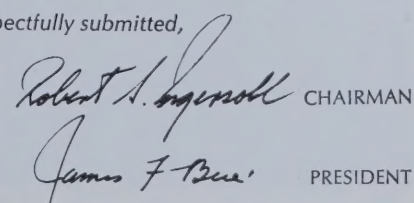 pectfully submitted,
Robert S. Ingersoll CHAIRMAN
James F Beré PRESIDENT